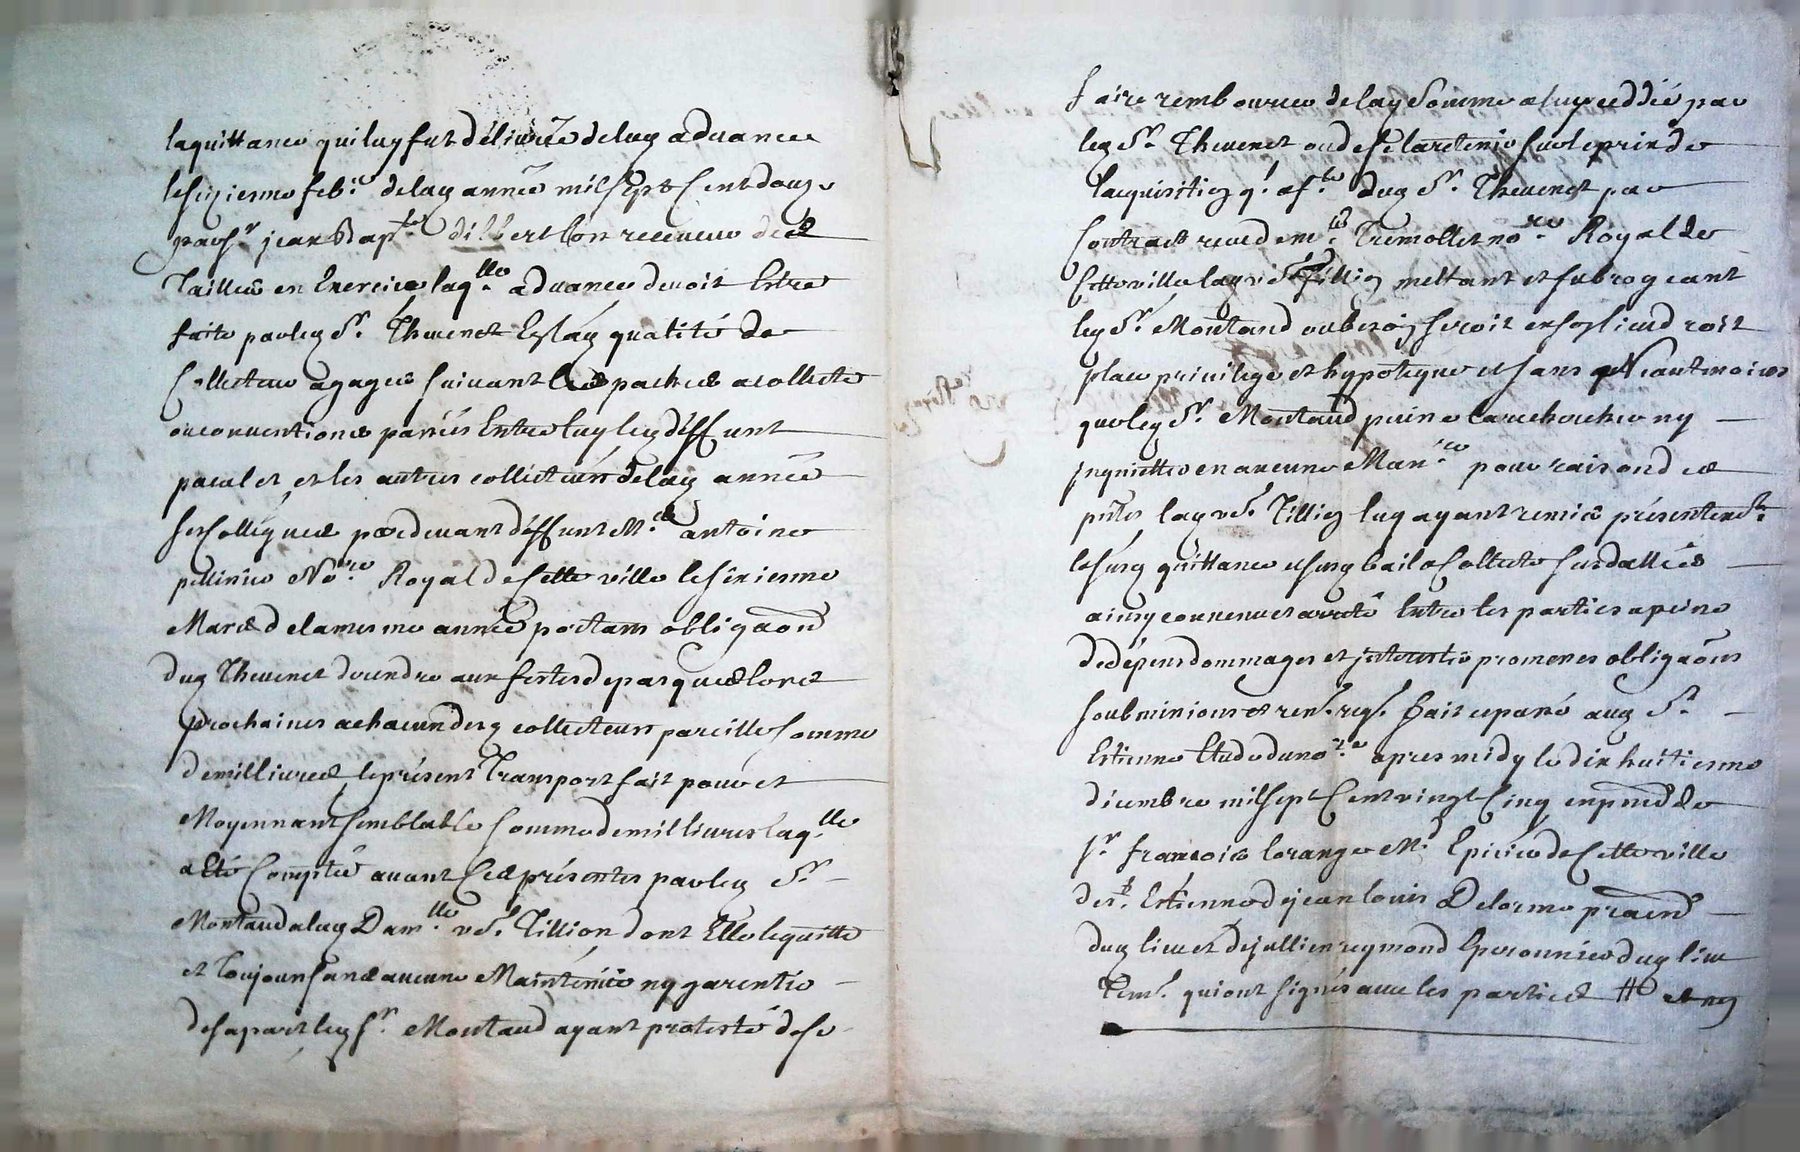 la quittance qui luy fut délivrée de lad advance
le siziesme feb.r de lad année mil sept cent douze
par s.r jean Bap.te dilbert lors receveur des
Tailles en Exercice laq.lle advance devoit Estre
faite par led S.r Thevenet Es lad qualité de
Collecteur a gages suivant les paches a collecte
ou conventions passés Entre luy led deffunt
paculet et les autres collecteurs de lad année
ses collegues pardevant deffunt M.e antoine
pellissier No.re Royal de cette ville le sixiesme
Mars de la mesme année portans obliga͠on
dud Thevenet de rendre aux festes de pasques lors
prochaines a chacun desd collecteurs pareille somme
de mil livres, le présent Transport fait pour et
Moyennant semblable somme de mil livres laq.lle
a Esté Comptée avant Ces présentes par led S.r
Montaud a lad Dam.lle ve.e Tillion dont Elle le quitte
et toujours sans aucune Maintenüe ny garentie
de sa part led S.r Montaud ayant protesté de se
faire rembourcer de lad Somme a luy ceddée par
led S.r Thevenet ou de se la retenir sur le prix de
lacquisition q.l a f.te dud S.r Thevenet par
Contract receu de m.e Tremollet no.re Royal de
Cette ville lad ve.e Tillion mettant et subrogeant
led S.r Montaud au besoin seroit en son lieu droit
place privilege et hypoteque et sans q Neantmoins
que led S.r Montaud puisse la rechercher ny
inquietter en aucune Man.re pour raison des
p̃ntes lad ve.e Tillion luy ayant remis présentem.t
le susd quittance et susd bail a Collecte susdattés
ainsy convenu et arreté Entre les parties a peine
de dépens dommages et interests promesses obliga͠ons
soubmissions et ren.s req.s Fait et passé aud S.t
Estienne Etude du no.re apres midy le dix huitiesme
décembre mil sept Cent vingt Cinq en p̃nce de
s.r françois lorange M.d Epicier de Cette ville
de S.t Estienne de jean louis Delorme pratt͠
dud lieu et de jullien reymond Eperonnier dud lieu
Tem.s qui ont signés avec les parties # et no